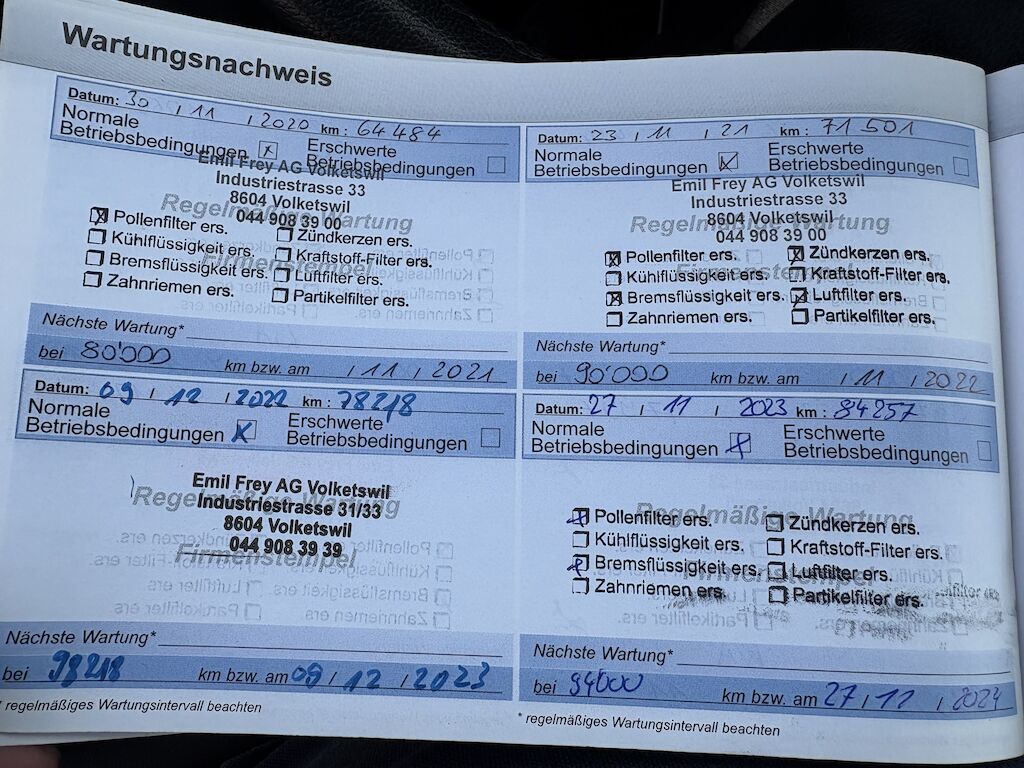 Wartungsnachweis
Datum: 30 / 11 / 2020 km : 64484
Normale Betriebsbedingungen ☒ Erschwerte Betriebsbedingungen ☐
Emil Frey AG Volketswil
Industriestrasse 33
8604 Volketswil
044 908 39 00
Regelmäßige Wartung
Firmenstempel
☒ Pollenfilter ers. ☐ Zündkerzen ers.
☐ Kühlflüssigkeit ers. ☐ Kraftstoff-Filter ers.
☐ Bremsflüssigkeit ers. ☐ Luftfilter ers.
☐ Zahnriemen ers. ☐ Partikelfilter ers.
Nächste Wartung*
bei 80'000 km bzw. am / 11 / 2021
Datum: 23 / 11 / 21 km : 71501
Normale Betriebsbedingungen ☒ Erschwerte Betriebsbedingungen ☐
Emil Frey AG Volketswil
Industriestrasse 33
8604 Volketswil
044 908 39 00
Regelmäßige Wartung
Firmenstempel
☒ Pollenfilter ers. ☒ Zündkerzen ers.
☐ Kühlflüssigkeit ers. ☐ Kraftstoff-Filter ers.
☒ Bremsflüssigkeit ers. ☒ Luftfilter ers.
☐ Zahnriemen ers. ☐ Partikelfilter ers.
Nächste Wartung*
bei 90'000 km bzw. am / 11 / 2022
Datum: 09 / 12 / 2022 km : 78218
Normale Betriebsbedingungen ☒ Erschwerte Betriebsbedingungen ☐
Emil Frey AG Volketswil
Industriestrasse 31/33
8604 Volketswil
044 908 39 39
Regelmäßige Wartung
Firmenstempel
Nächste Wartung*
bei 98218 km bzw. am 09 / 12 / 2023
* regelmäßiges Wartungsintervall beachten
Datum: 27 / 11 / 2023 km : 84257
Normale Betriebsbedingungen ☒ Erschwerte Betriebsbedingungen ☐
Regelmäßige Wartung
Firmenstempel
☒ Pollenfilter ers. ☐ Zündkerzen ers.
☐ Kühlflüssigkeit ers. ☐ Kraftstoff-Filter ers.
☒ Bremsflüssigkeit ers. ☐ Luftfilter ers.
☐ Zahnriemen ers. ☐ Partikelfilter ers.
Nächste Wartung*
bei 94000 km bzw. am 27 / 11 / 2024
* regelmäßiges Wartungsintervall beachten